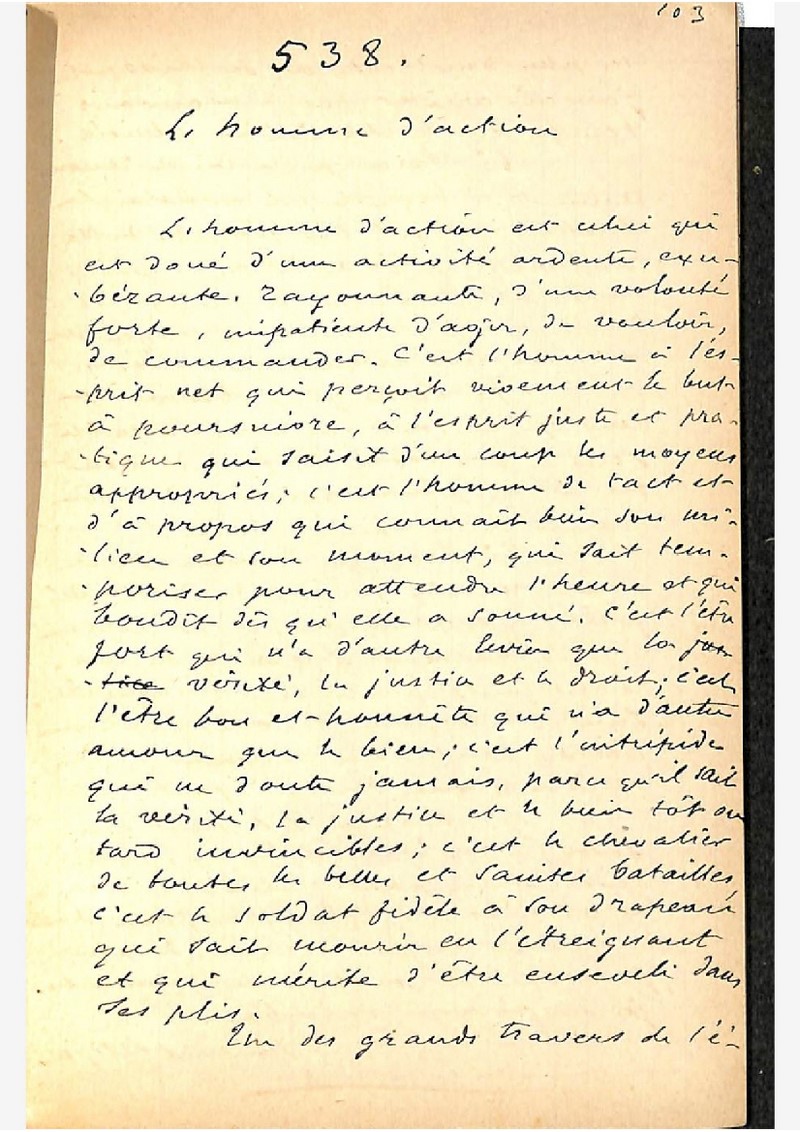 103
538.
L'homme d'action
L'homme d'action est celui qui
est doué d'une activité ardente, exu-
bérante, rayonnante, d'une volonté
forte, impatiente d'agir, de vouloir,
de commander. C'est l'homme à l'es-
prit net qui perçoit vivement le but
à poursuivre, à l'esprit juste et pra-
tique qui saisit d'un coup les moyens
appropriés; c'est l'homme de tact et
d'à propos qui connaît bien son mi-
lieu et son moment, qui sait tem-
poriser pour attendre l'heure et qui
bondit dès qu'elle a sonné. C'est l'être
fort qui n'a d'autre levier que la jus-
tice vérité, la justice et le droit; c'est
l'être bon et honnête qui n'a d'autre
amour que le bien; c'est l'intrépide
qui ne doute jamais, parce qu'il sait
la vérité, la justice et le bien tôt ou
tard invincibles; c'est le chevalier
de toutes les belles et saintes batailles,
c'est le soldat fidèle à son drapeau
qui sait mourir en l'étreignant
et qui mérite d'être enseveli dans
ses plis.
Un des grands travers de l'é-